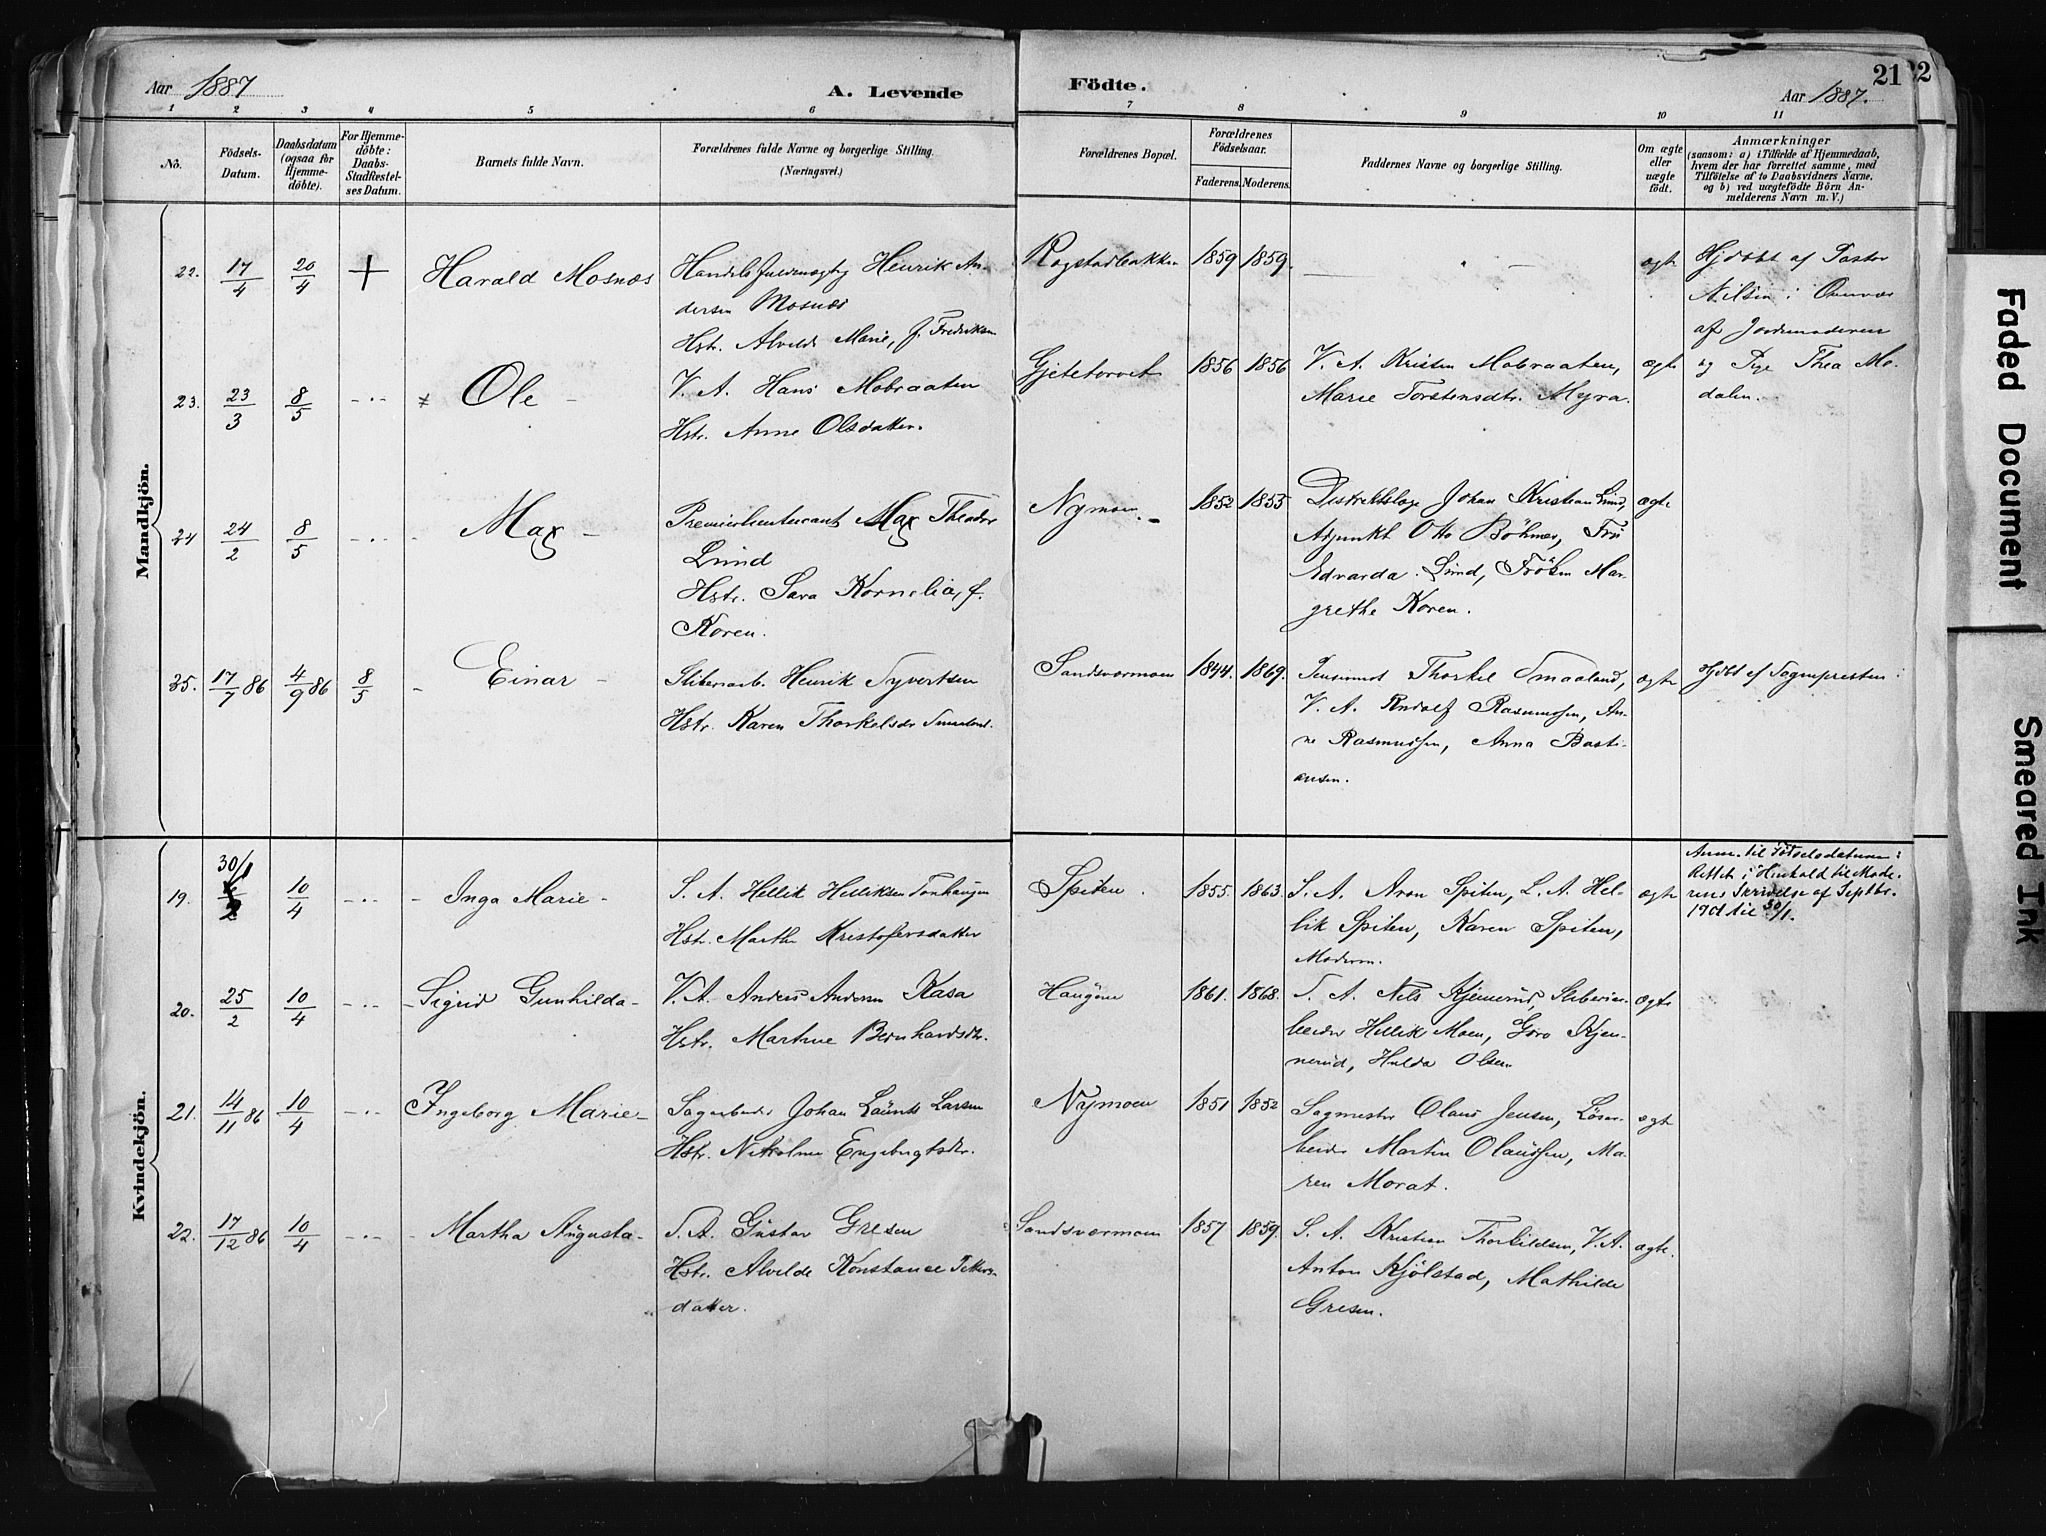 Aar 1887
A. Levende
Födte.
Aar 1887.
21
22
1 2 3 4 5 6 7 8 9 10 11
No.
Födsels-
Datum.
Daabsdatum
(ogsaa for
Hjemme-
döbte).
For Hjemme-
döbte:
Daabs-
Stadfæstel-
ses Datum.
Barnets fulde Navn.
Forældrenes fulde Navne og borgerlige Stilling.
(Næringsvei.)
Forældrenes Bopæl.
Forældrenes
Födselsaar.
Faderens. Moderens.
Faddernes Navne og borgerlige Stilling.
Om ægte
eller
uægte
födt.
Anmærkninger
(saasom: a) i Tilfælde af Hjemmedaab,
hvem der har forrettet samme, med
Tilföielse af to Daabsvidners Navne,
og b) ved uægtefödte Börn An-
melderens Navn m. V.)
Mandkjön.
22. 17/4 20/4 + Harald Mosnæs
Handelsfuldmægtig Henrik An-
dersen Mosnæs
Hstr. Alvilde Marie, f. Fredriksen
Rogstadbakken 1859 1859. — " — ægte
Hjdöbt af Pastor
Nilsen i
af Jordmoderen
og Pige Thea Mo-
dalen.
23. 23/3 8/5 - " - Ole -
V. A. Hans Mobraaten
Hstr. Anne Olsdatter.
Gjetetorvet 1856 1856
V. A. Kristen Mobraaten,
Marie Torstensdtr. Myra.
ægte
24 24/2 8/5 - " - Max -
Premierlieutenant Max Theodor
Lund
Hstr. Sara Kornelia, f.
Koren.
Nymoen. - 1852 1855
Distriktslæge Johan Kristian Lund,
Adjunkt Otto Böhmer, Fru
Edvarda Lund, Fröken Mar-
grethe Koren.
ægte
25. 17/7 86 4/9 86 8/5 - Einar -
Sliberiarb. Henrik Syvertsen
Hstr. Karen Thorkelsdr Smaaland.
Sandsværmoen 1844. 1869.
Pensionist Thorkel Smaaland,
V. A. Rudolf Rasmussen, An-
ne Rasmussen, Anna Basti-
ansen.
ægte
Hjdbt af Sognepresten
Kvindekjön.
30/1
19. 10/4 - " - - Inga Marie -
S. A. Hellik Helliksen Tonhaugen
Hstr. Marthe Kristofersdatter
Spiten. 1855. 1863.
S. A. Aron Spiten, L. A. Hel-
lik Spiten, Karen Spiten,
Moderen.
ægte
Anm. til Födselsdatum:
Rettet i Henhold til Mode-
rens Skrivelse af Septbr.
1901 til 30/1.
20. 25/2 10/4 - " - - Sigrid Gunhilda -
V. A. Anders Andersen Kasa
Hstr. Martine Bernhardsdtr.
Haugene 1861. 1868.
S. A. Nils Kjennerud, Sliberiar-
beider Hellik Moen, Goro Kjen-
nerud, Hulda Olsen
ægte
21. 14/11 86 10/4 - " - Ingeborg Marie -
Sagarbeider Johan Laurits Larsen
Hstr. Nikoline Engebrigtsdtr.
Nymoen 1851 1852
Sagmester Olaus Jensen, Løsar-
beider Martin Olaussen, Ma-
ren Morat.
ægte
22. 17/12 86 10/4 - " - Martha Augusta -
S. A. Gustav Gresen
Hstr. Alvilde Konstance Petters-
datter.
Sandsværmoen 1857 1859.
S. A. Kristian Thorkildsen, V. A.
Anton Kjölstad, Mathilde
Gresen.
ægte.
Faded Document
Smeared Ink